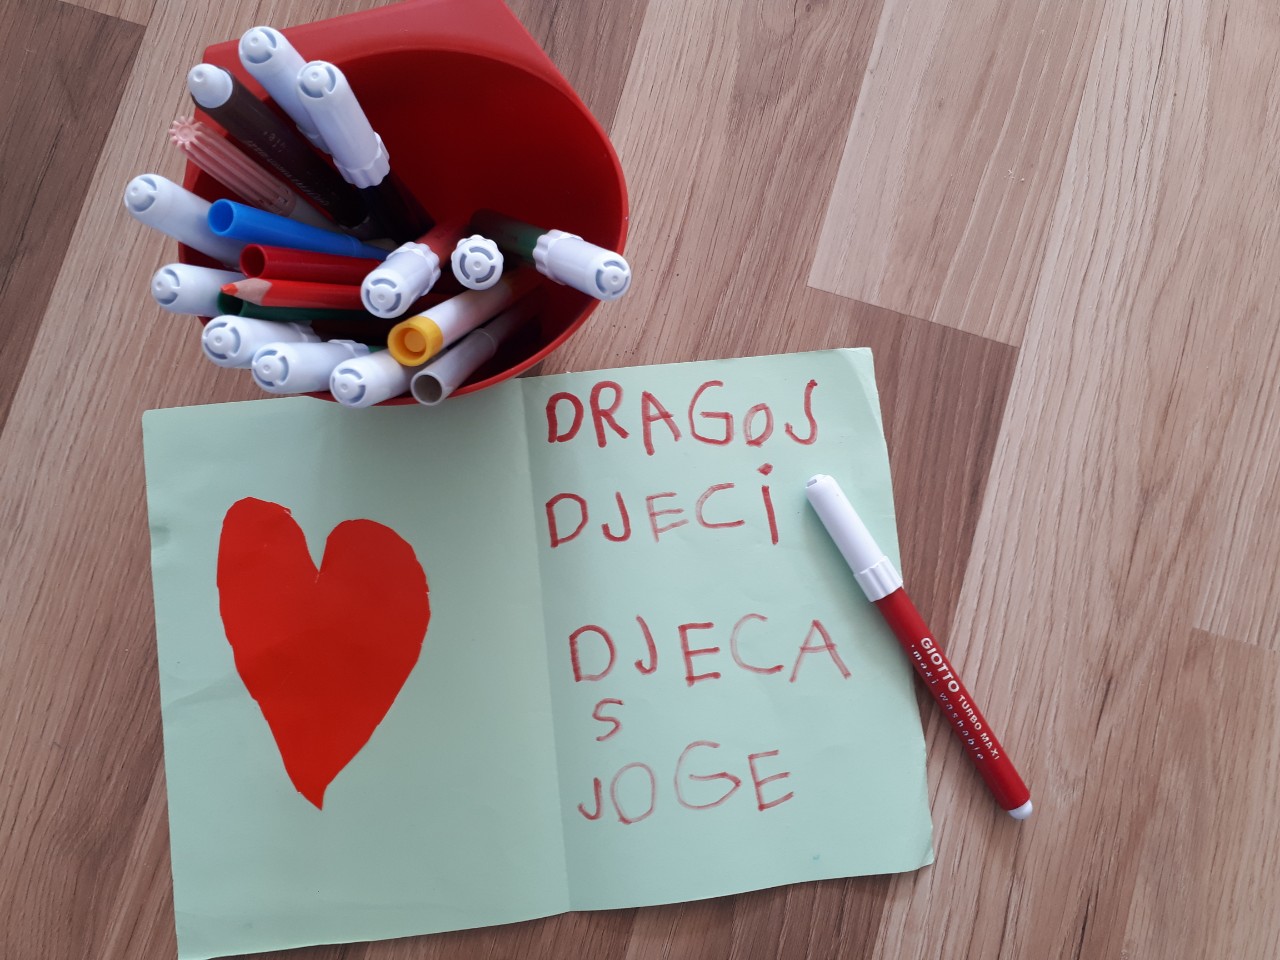 DRAGOS
DJECI
DJECA
S
JOGE
GIOTTO TURBO MAXI
maxi washable